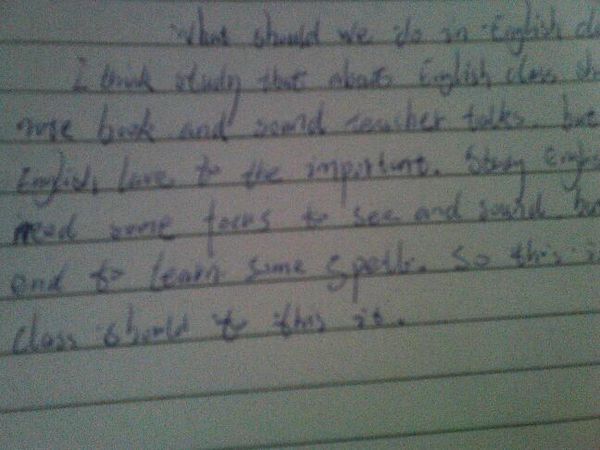 What should we do in English cla
I think study that about English class sh
more book and sound teacher talks. but
English, love to the important. Study Englis
need some focus to see and sound, but
end to learn some spells. So this is
class should to this is.